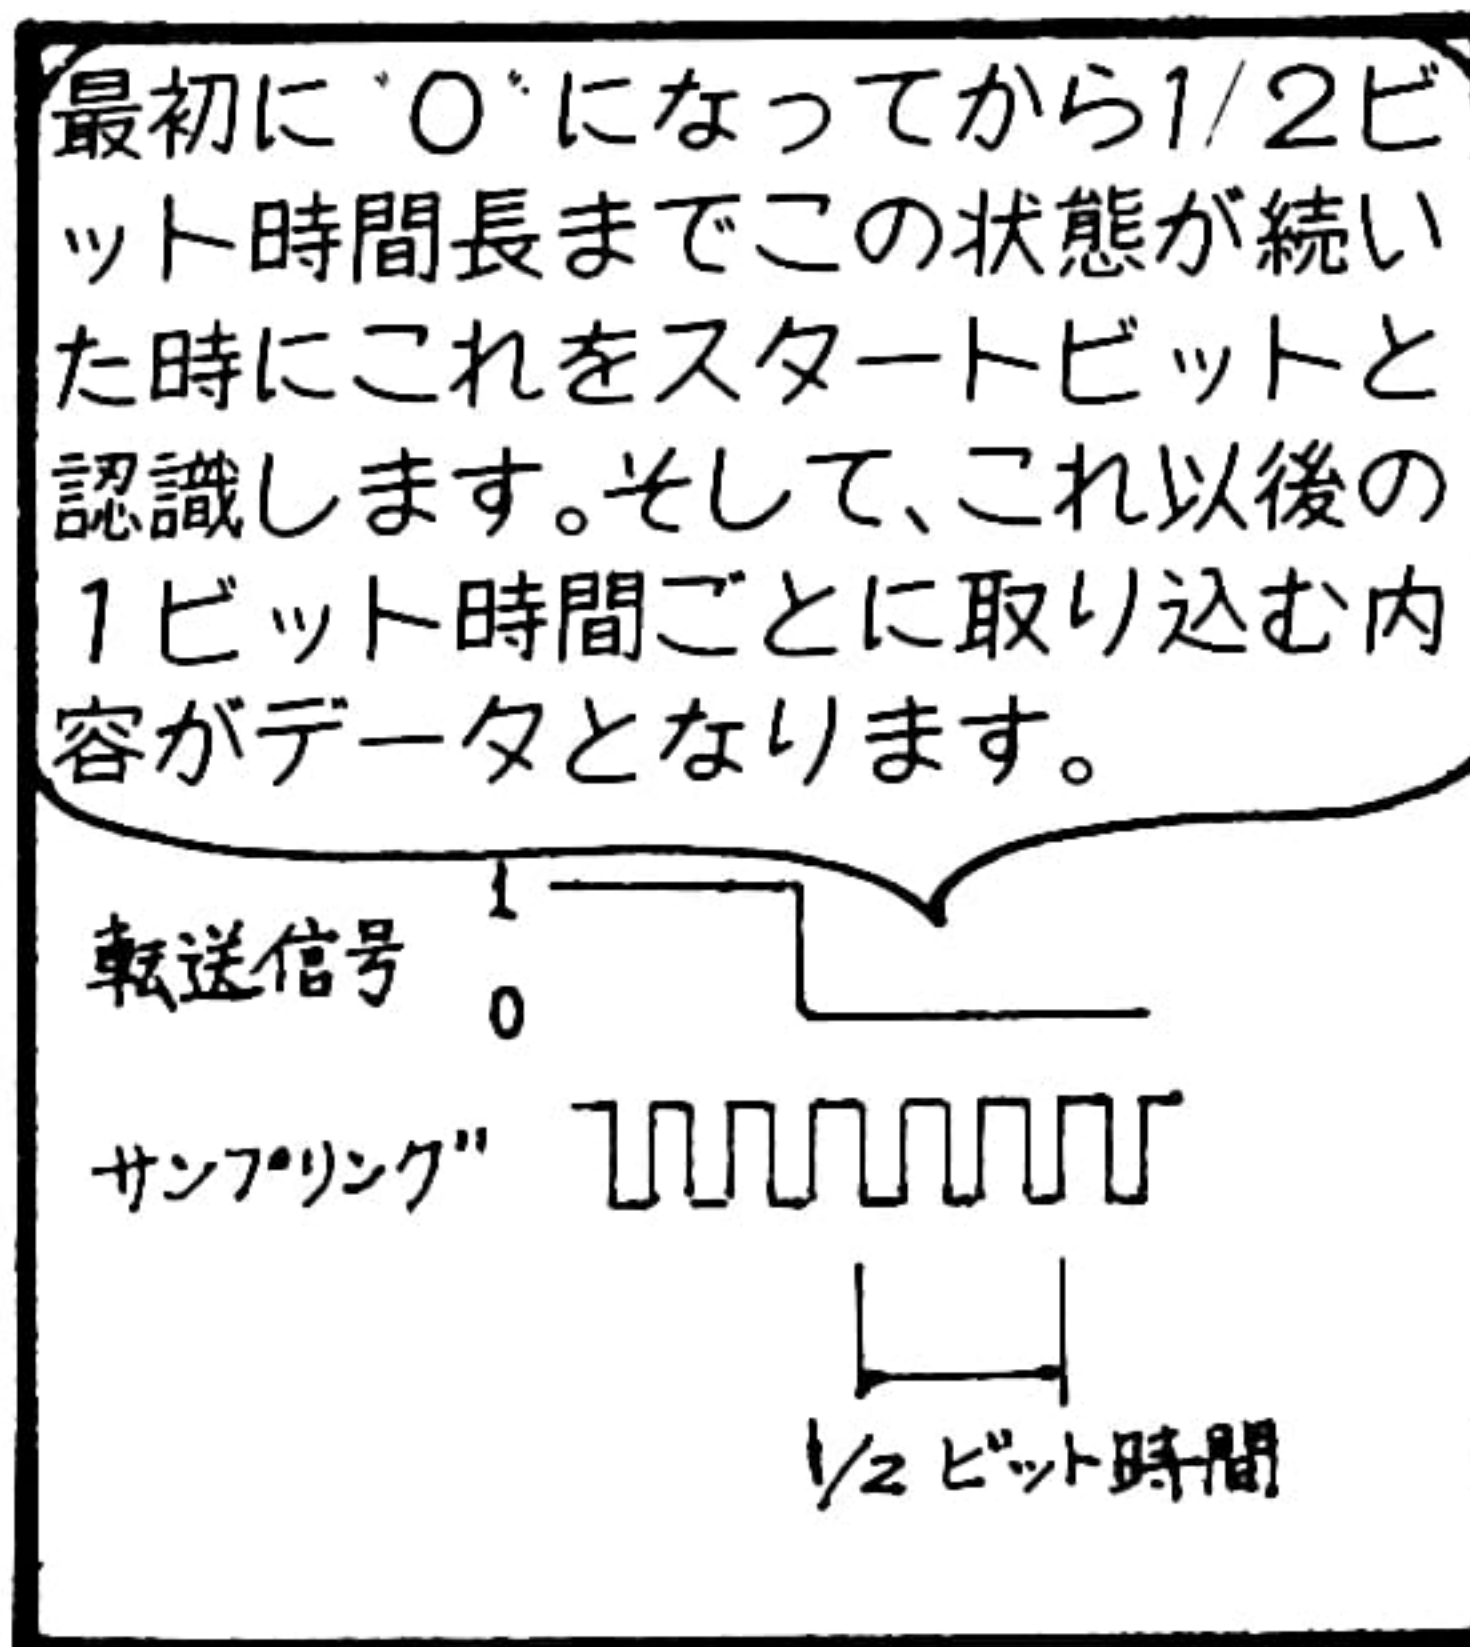 最初に“0”になってから1/2ビ
ット時間長までこの状態が続い
た時にこれをスタートビットと
認識します。そして、これ以後の
1ビット時間ごとに取り込む内
容がデータとなります。
1
転送信号
0
サンプリング
1/2 ビット時間